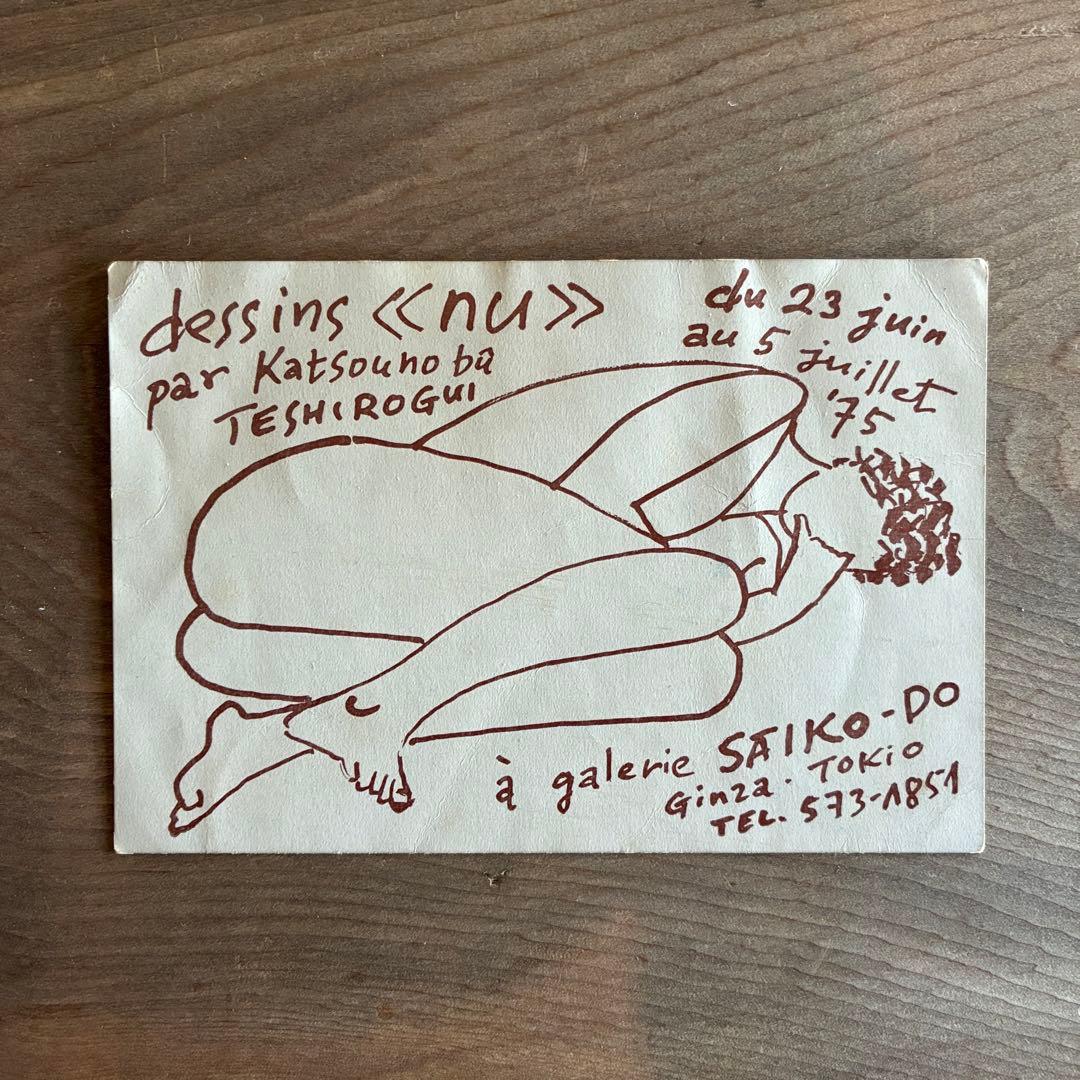 dessins «nu»
par Katsounobû
TESHIROGUI
du 23 juin
au 5 juillet
'75
à galerie SAIKO-DO
Ginza. TOKIO
TEL. 573-1851